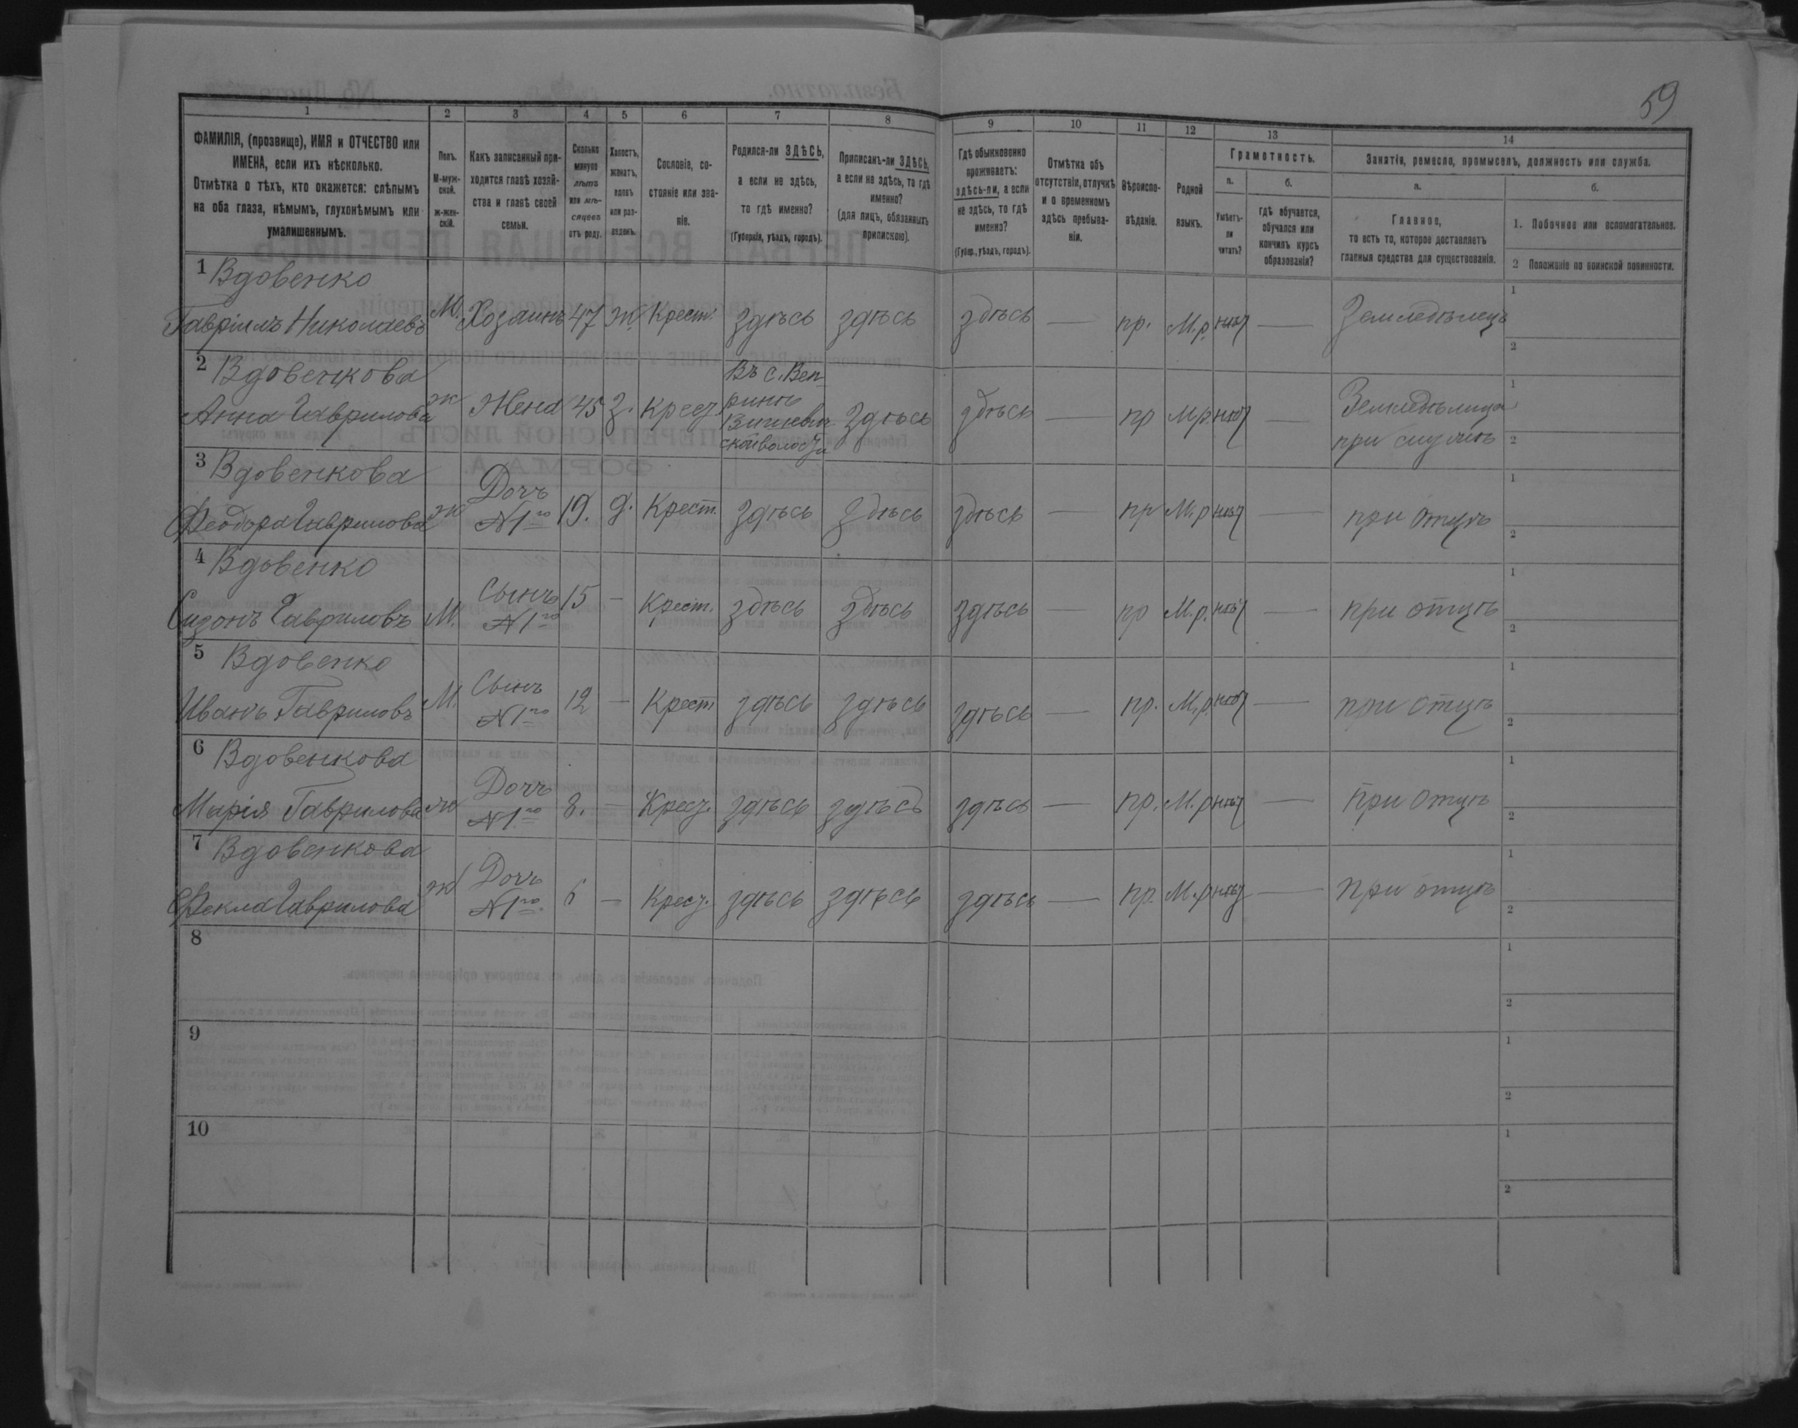 59
1 2 3 4 5 6 7 8 9 10 11 12 13 14
ФАМИЛІЯ, (прозвище), ИМЯ и ОТЧЕСТВО или
ИМЕНА, если ихъ нѣсколько.
Отмѣтка о тѣхъ, кто окажется: слѣпымъ
на оба глаза, нѣмымъ, глухонѣмымъ или
умалишеннымъ.
Полъ.
М-муж-
ской.
ж-жен-
скій.
Какъ записанный при-
ходится главѣ хозяй-
ства и главѣ своей
семьи.
Сколько
минуло
лѣтъ
или мѣ-
сяцевъ
отъ роду.
Холостъ,
женатъ,
вдовъ
или раз-
веденъ.
Сословіе, со-
стояніе или зва-
ніе.
Родился-ли ЗДѢСЬ,
а если не здѣсь,
то гдѣ именно?
(Губернія, уѣздъ, городъ).
Приписанъ-ли ЗДѢСЬ,
а если не здѣсь, то гдѣ
именно?
(для лицъ, обязанныхъ
припискою).
Гдѣ обыкновенно
проживаетъ:
здѣсь-ли, а если
не здѣсь, то гдѣ
именно?
(Губер., уѣздъ, городъ).
Отмѣтка объ
отсутствіи, отлучкѣ
и о временномъ
здѣсь пребыва-
ніи.
Вѣроиспо-
вѣданіе.
Родной
языкъ.
Грамотность.
а.
Умѣетъ-
ли
читать?
б.
гдѣ обучается,
обучался или
кончилъ курсъ
образованія?
Занятіе, ремесло, промыселъ, должность или служба.
а.
Главное,
то есть то, которое доставляетъ
главныя средства для существованія.
б.
1. Побочное или вспомогательное.
2 Положеніе по воинской повинности.
1 Вдовенко
Гавріилъ Николаевъ М. Хозаинъ 47 ж Крест. здѣсь здѣсь здѣсь — пр. М.р. нѣт — Земледѣлецъ 1 2
2 Вдовенкова
Анна Гаврилова ж Жена 45 з. Крест Въ с. Веп-
скойволости здѣсь здѣсь — пр М.р. нѣт — при 1 2
3 Вдовенкова
Феодора Гаврилова ж Дочь №1го 19. д. Крест. здѣсь здѣсь здѣсь пр М.р нѣт при отцѣ 1 2
4 Вдовенко
Сизонъ Гавриловъ М. Сынъ №1го 15 — Крест. здѣсь здѣсь здѣсь — пр М.р. нѣт — при отцѣ 1 2
5 Вдовенко
Иванъ Гавриловъ М. Сынъ №1го 12 — Крест здѣсь здѣсь здѣсь — пр. М.р. нѣт — при отцѣ 1 2
6 Вдовенкова
Марія Гаврилова ж Дочь №1го 8. — Крест. здѣсь здѣсь здѣсь — пр. М.р нѣт — при отцѣ 1 2
7 Вдовенкова
Фекла Гаврилова ж Дочь №1го. 6 — Крест. здѣсь здѣсь здѣсь — пр. М.р нѣт — при отцѣ 1 2
8 1 2
9 1 2
10 1 2